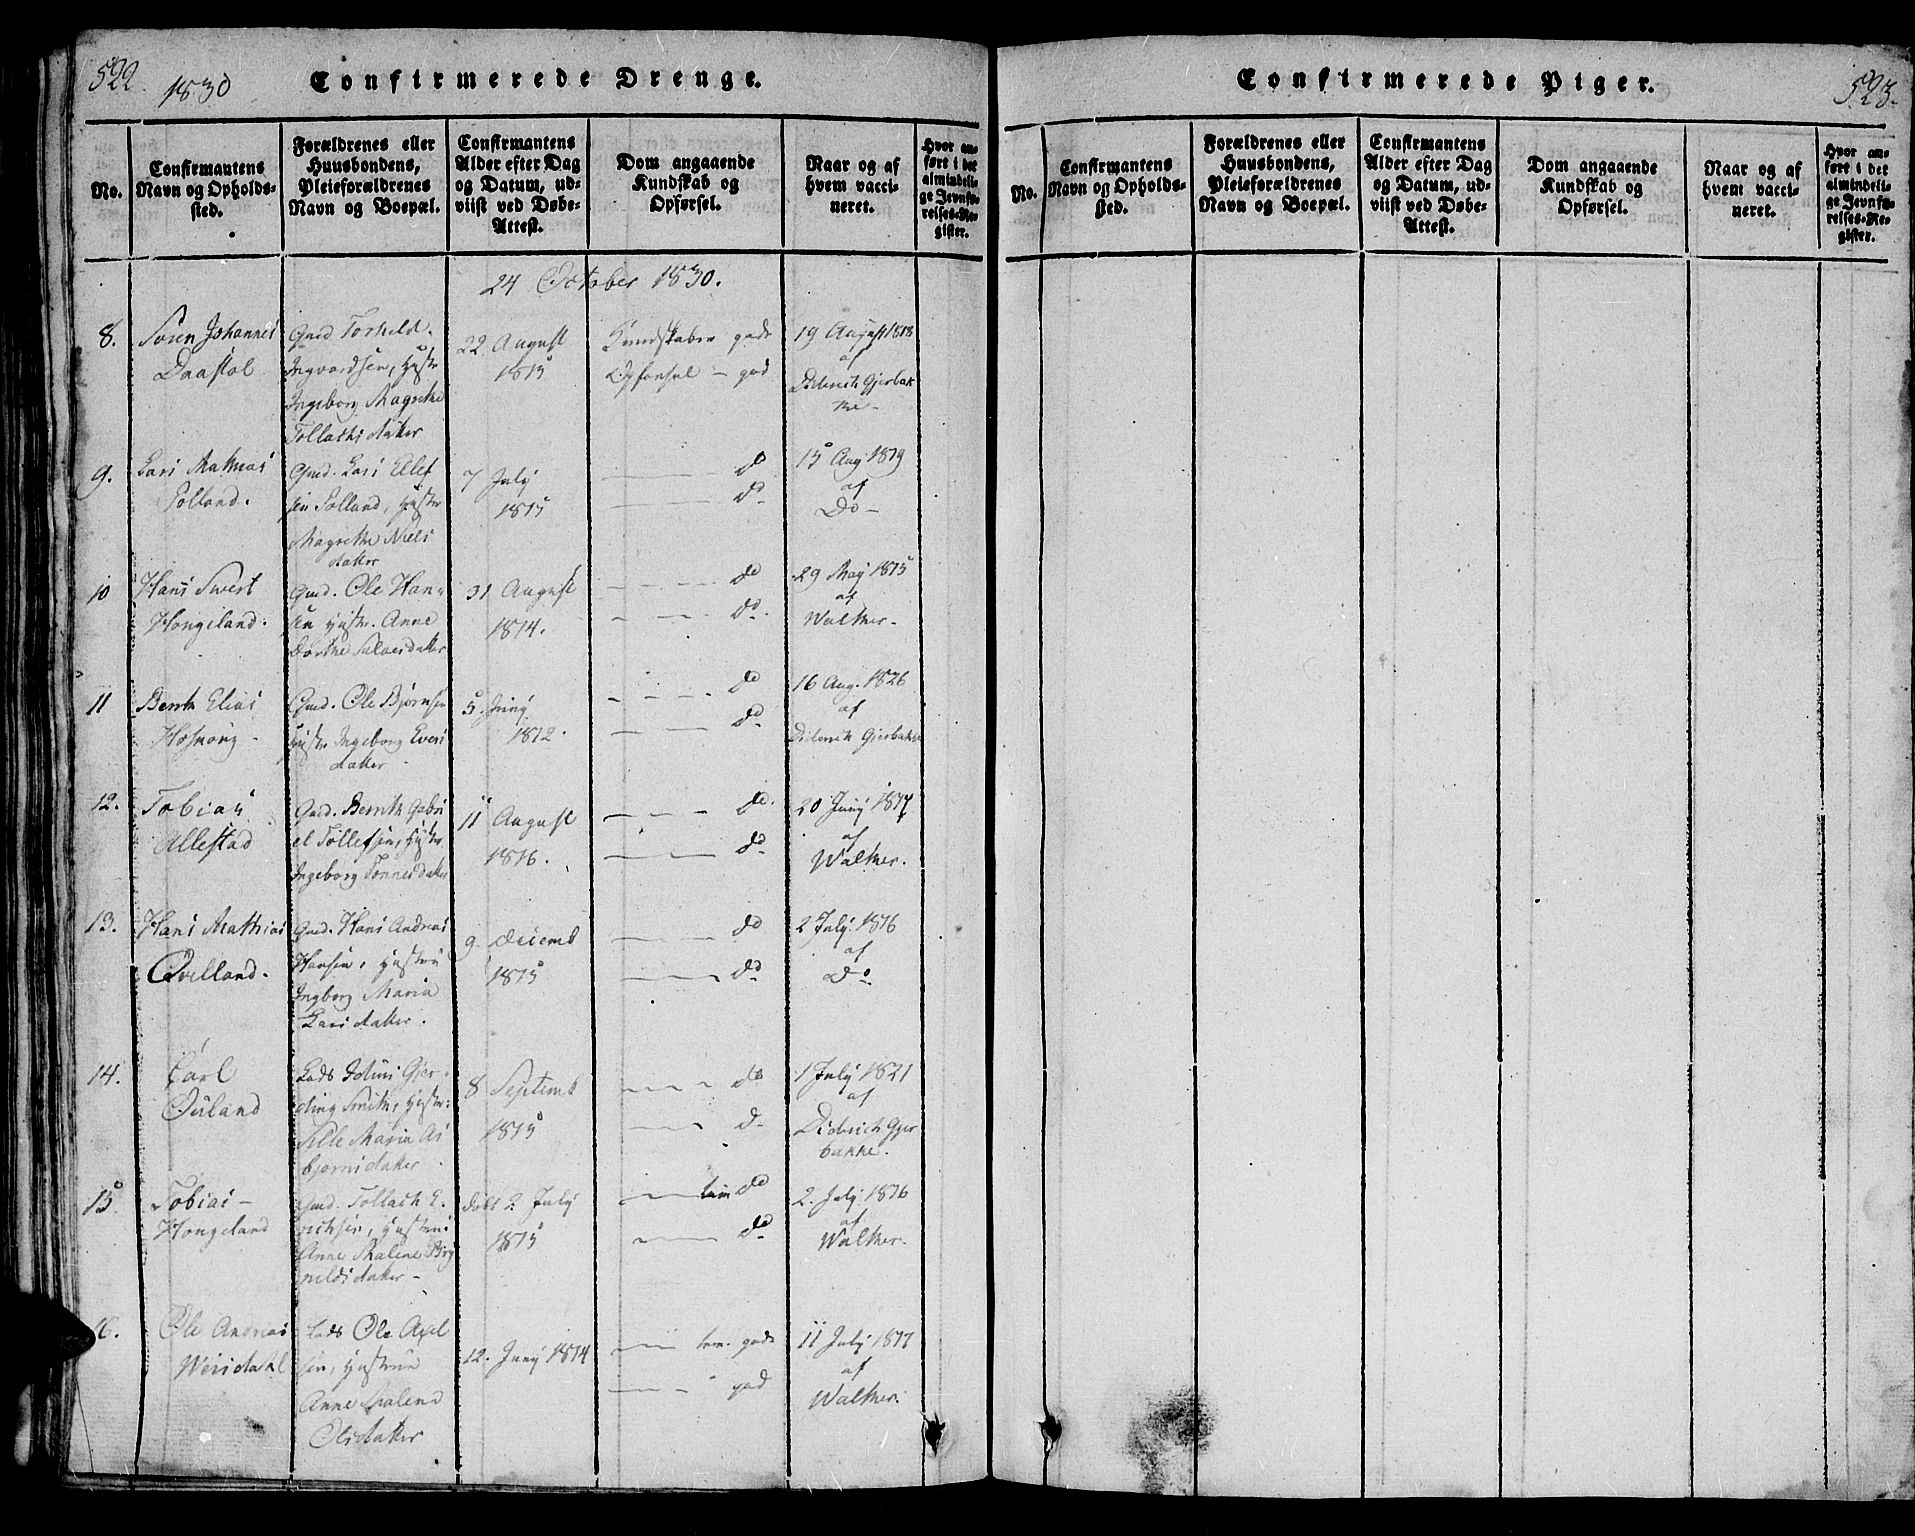 522.
1830
Confirmerede Drenge.
No.
Confirmantens
Navn og Opholds-
sted.
Forældrenes eller
Huusbondens,
Pleieforældrenes
Navn og Boepæl.
Confirmantens
Alder efter Dag
og Datum, ud-
viist ved Døbe-
Attest.
Dom angaaende
Kundskab og
Opførsel.
Naar og af
hvem vacci-
neret.
Hvor an-
ført i det
almindeli-
ge Jevnfø-
relses-Re-
gister.
24 October 1830.
8.
Søren Johannes
Daastøl
Gmd Torkeld
Ingvardsen, Hustr
Ingeborg Magrethe
Tollachs datter
22 August
1815
Kundskaber gode
Opførsel - god
19 August 1818
af
Diderich Gjerbak
ke-
9.
Lars Mathias
Solland.
Gmd. Lars Ellef
sen Solland, Hustr
Magrethe Niels
datter
7 July
1815
do
do
15 Aug 1819
af
Do-
10
Hans Swert
Hongeland.
Gmd. Ole Han-
sen Hustr. Anne
Dorthe Salvesdatter
31 August
1814.
do
do.
29 May 1815
af
Walther-
11
Bernth Elias
Gmd. Ole Bjørnsen
Hustr Ingeborg Evers
datter
5. Juny
1812.
do
do
16 Aug. 1826
af
Diderich Gjerbakke
12.
Tobias
Allestad
Gmd. Bernth Gabri
el Tollefsen, Hustr
Ingeborg Tønnesdatter
11 August
1816.
do.
do
20 Juny 1817
af
Walther.
13.
Hans Mathias
Qvelland.
Gmd. Hans Andreas
Hansen, Hustru
Ingborg Maria
Lars datter.
9 Decemb
1815
do
do
2 July 1816
af
Do
14.
Carl
Øuland
Gjer-
ding Smith, Hustr:
Sille Maria As
bjørns datter
8 Septemb
1815
do
d-
1 July 1821
af
Diderich Gjer
bakke.
15
Tobias-
Hongeland
Gmd. Tollach E-
richsen, Hustrue
Anne Malene
datter-
døbt 2 July
1815
do
do
2. July 1816
af
Walther.
16.
Ole Andreas
Weisdahl
Ole Axel
sen, Hustrue
Anne Malene
Olsdatter
12. Juny 1814
tem. gode
god
11 July 1817
af
Walther.
Confirmerede Piger.
523.
No.
Confirmantens
Navn og Opholds-
sted.
Forældrenes eller
Huusbondens,
Pleieforældrenes
Navn og Boepæl.
Confirmantens
Alder efter Dag
og Datum, ud-
viist ved Døbe-
Attest.
Dom angaaende
Kundskab og
Opførsel.
Naar og af
hvem vacci-
neret.
Hvor an-
ført i det
almindeli-
ge Jevnfø-
relses-Re-
gister.